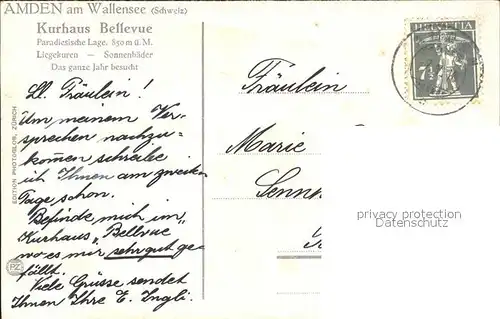 AMDEN am Wallensee (Schweiz)
Kurhaus Bellevue
Paradiesische Lage. 850 m ü. M.
Liegekuren — Sonnenbäder
Das ganze Jahr besucht
Ll. Fräulein!
Um meinem Ver-
sprechen nachzu-
kom̅en schreibe
ich Ihnen am zweiten
Tage schon.
Befinde mich im
"Kurhaus Bellevue"
wo es mir sehr gut ge-
fällt.
Viele Grüsse sendet
Ihnen Ihre E. Ingli.
EDITION PHOTOGLOB, ZÜRICH
PZ
HELVETIA
7½
Fräulein
Marie
Senn
privacy protection
Datenschutz